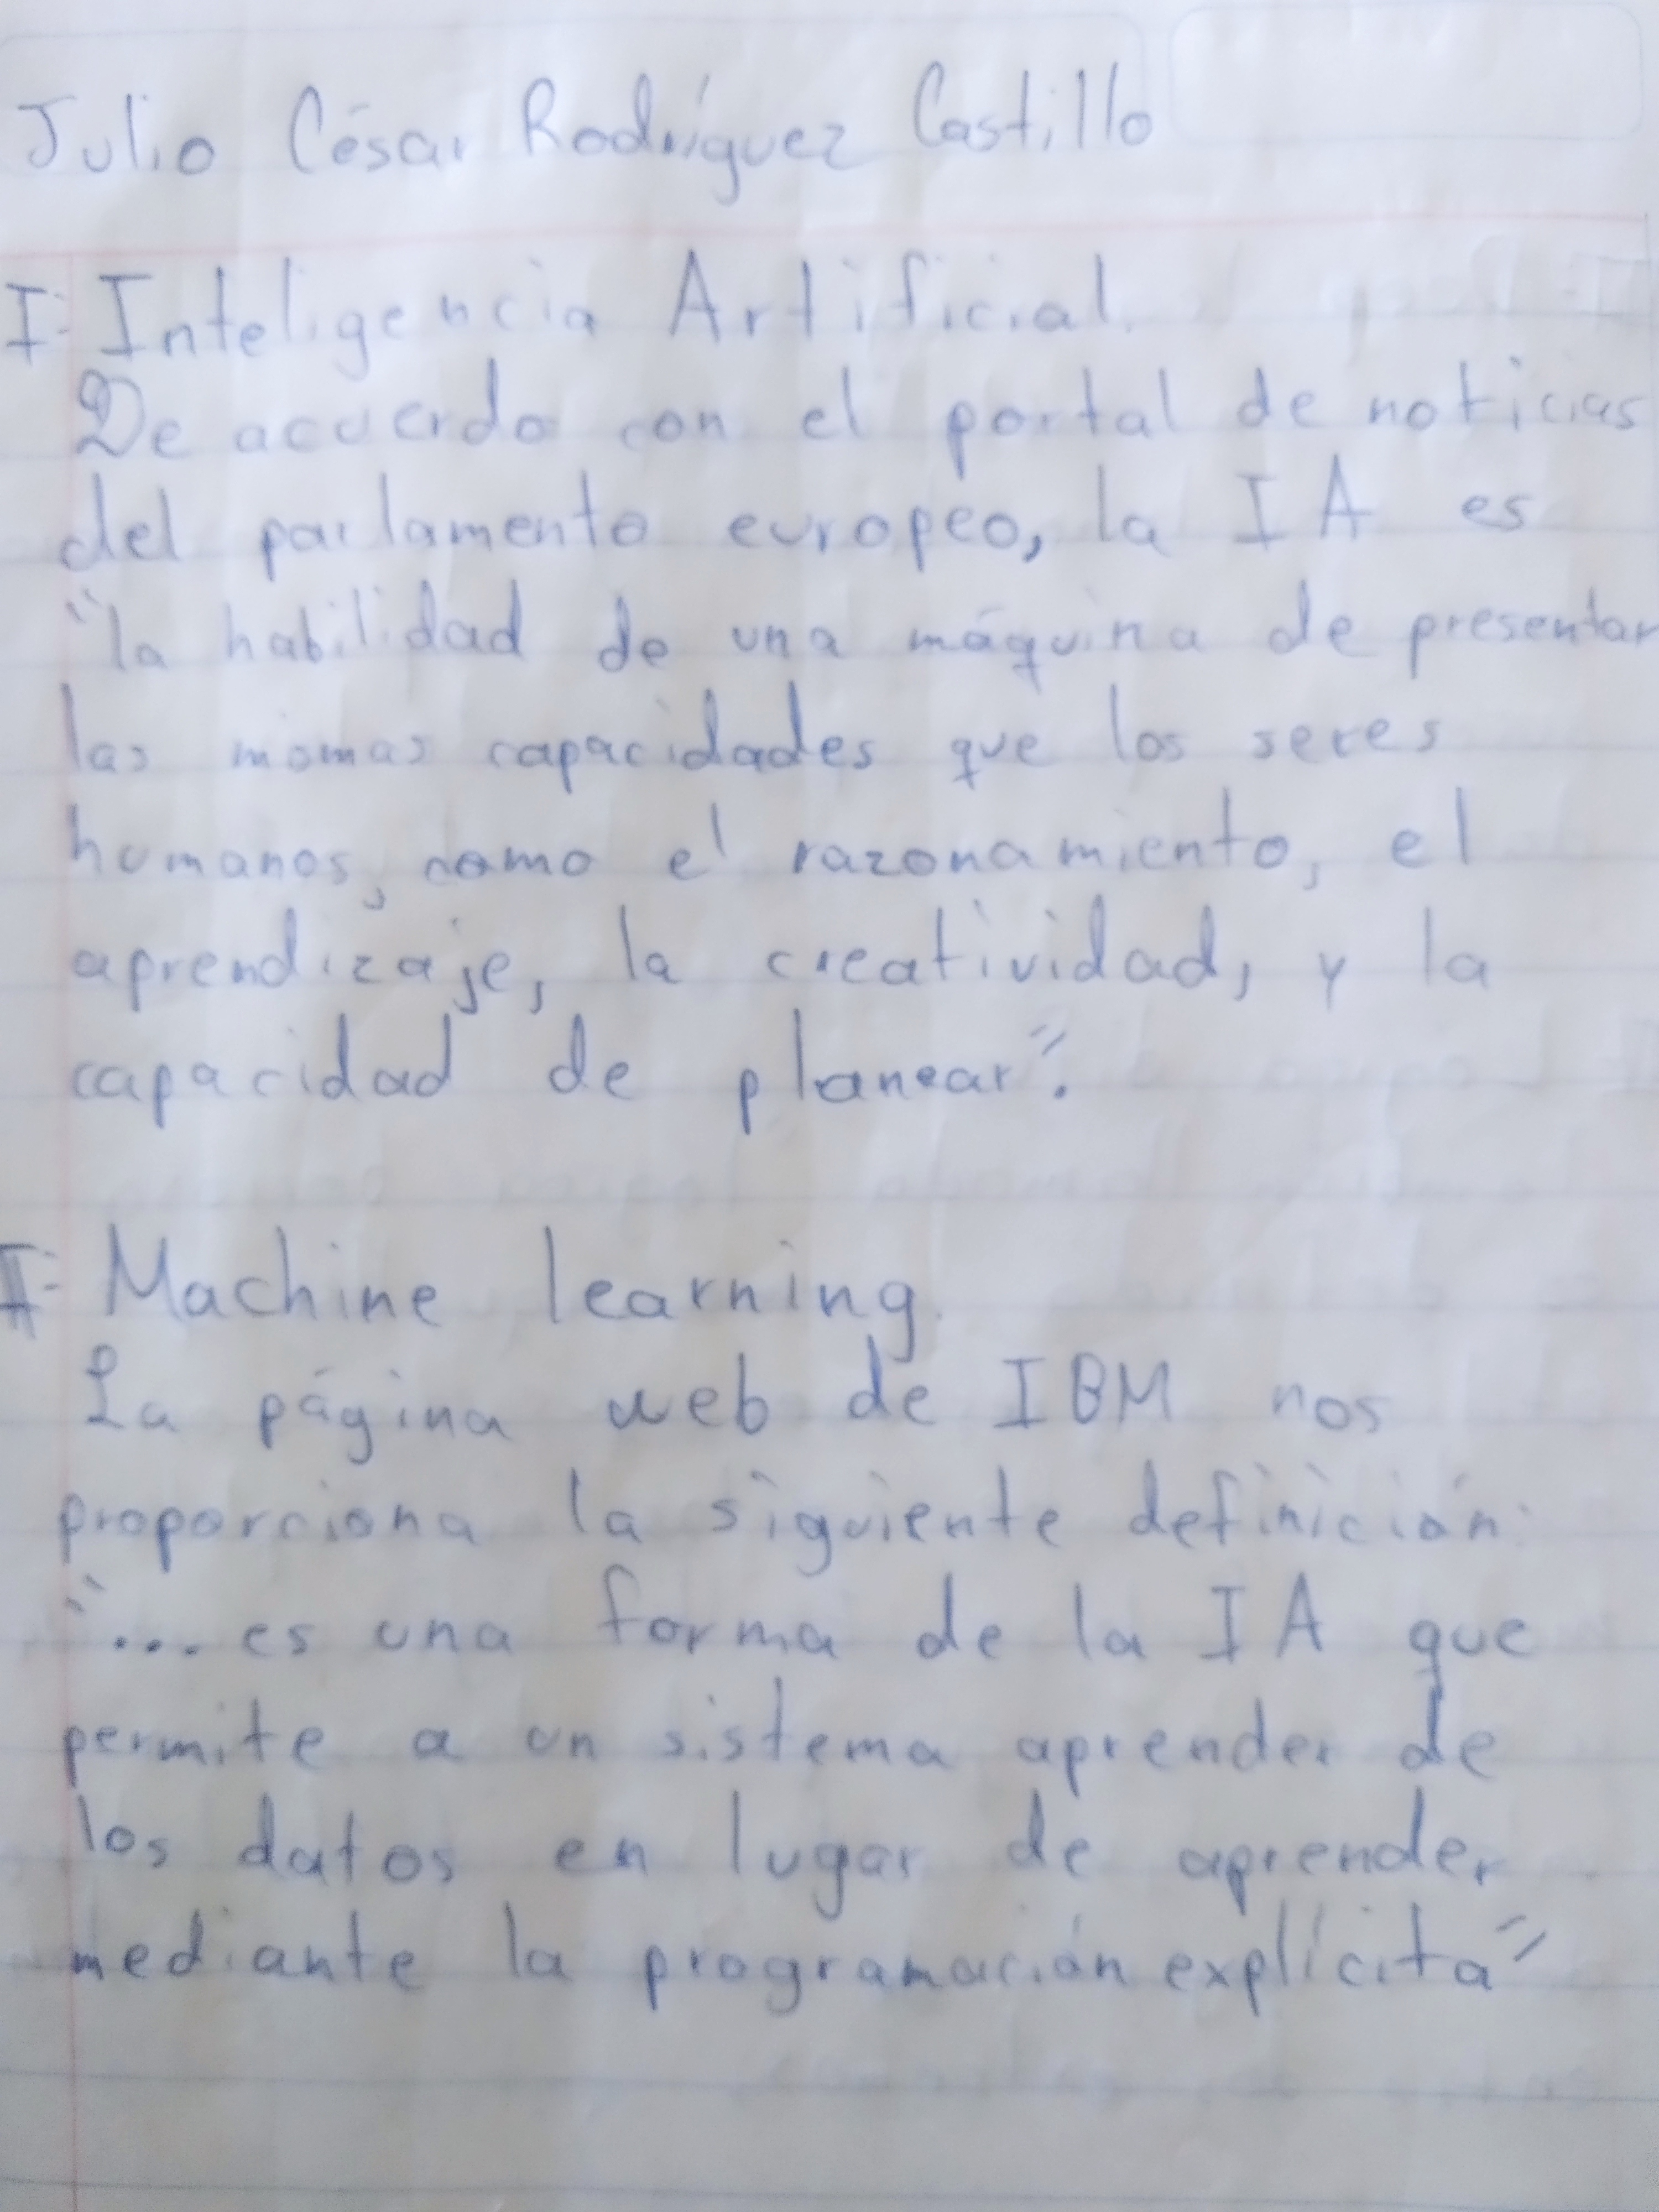 Julio César Rodríguez Castillo
I- Inteligencia Artificial.
De acuerdo con el portal de noticias
del parlamento europeo, la IA es
"la habilidad de una máquina de presentar
las mismas capacidades que los seres
humanos, como el razonamiento, el
aprendizaje, la creatividad, y la
capacidad de planear".
II- Machine learning.
La página web de IBM nos
proporciona la siguiente definición:
"... es una forma de la IA que
permite a un sistema aprender de
los datos en lugar de aprender
mediante la programación explícita"